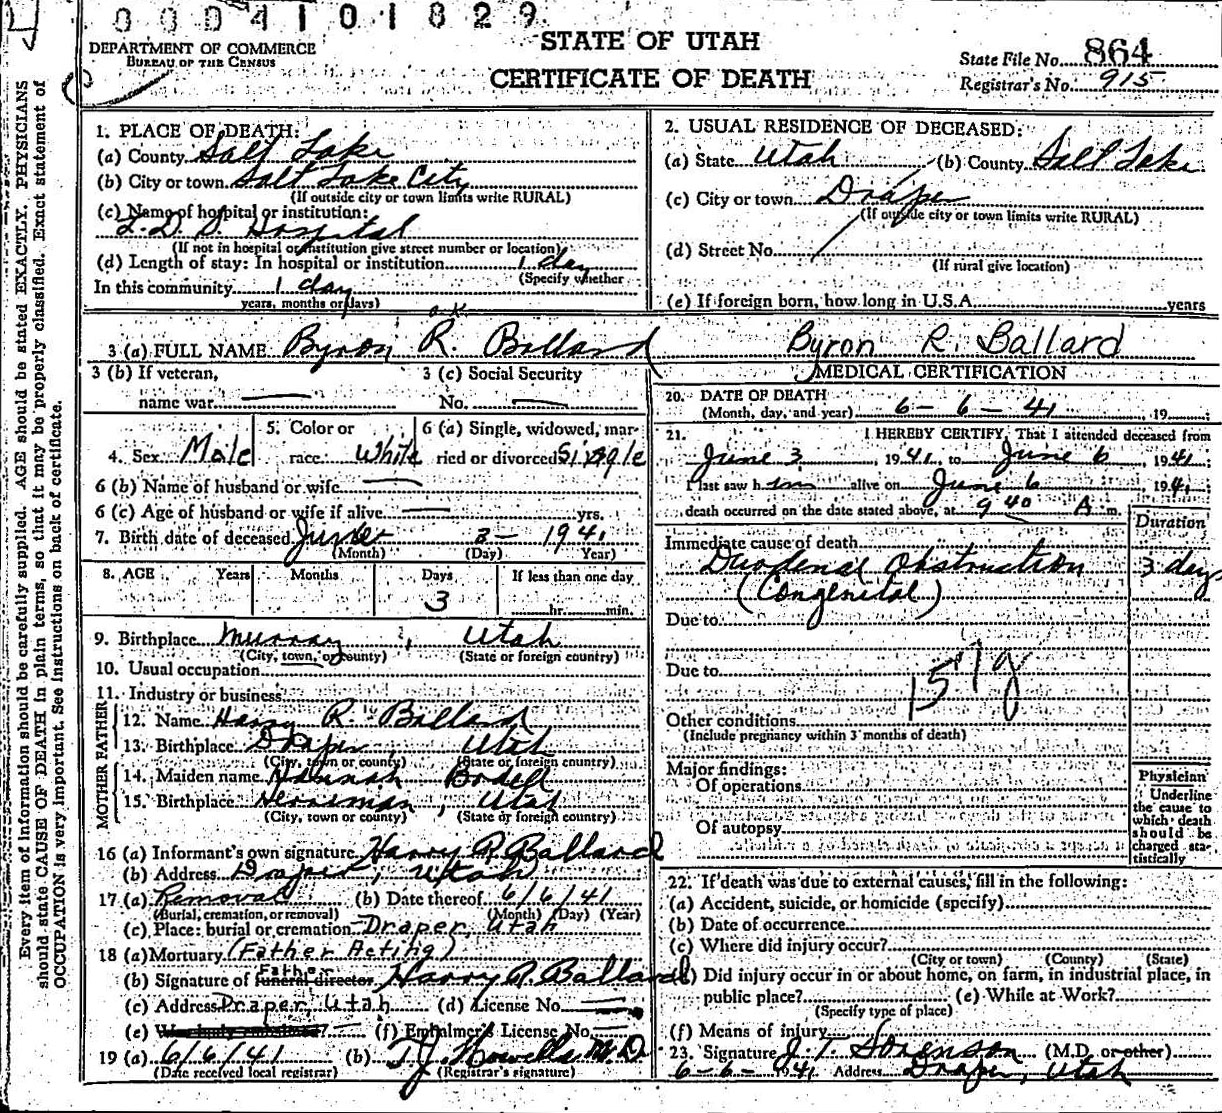 0004101829
DEPARTMENT OF COMMERCE
BUREAU OF THE CENSUS
STATE OF UTAH
CERTIFICATE OF DEATH
State File No. 864
Registrar's No. 915
Every item of information should be carefully supplied. AGE should be stated EXACTLY. PHYSICIANS
should state CAUSE OF DEATH in plain terms, so that it may be properly classified. Exact statement of
OCCUPATION is very important. See instructions on back of certificate.
1. PLACE OF DEATH:
(a) County Salt Lake
(b) City or town Salt Lake City
(If outside city or town limits write RURAL)
(c) Name of hospital or institution:
L.D.S. Hospital
(If not in hospital or institution give street number or location)
(d) Length of stay: In hospital or institution 1 day
(Specify whether
In this community 1 day
years, months or days)
2. USUAL RESIDENCE OF DECEASED:
(a) State Utah (b) County Salt Lake
(c) City or town Draper
(If outside city or town limits write RURAL)
(d) Street No.
(If rural give location)
(e) If foreign born, how long in U.S.A. years
O.K.
3 (a) FULL NAME Byron R. Ballard Byron R. Ballard
3 (b) If veteran,
name war —
3 (c) Social Security
No. —
4. Sex Male
5. Color or
race White
6 (a) Single, widowed, mar-
ried or divorced Single
6 (b) Name of husband or wife —
6 (c) Age of husband or wife if alive — yrs.
7. Birth date of deceased June 3 - 1941
(Month) (Day) Year)
8. AGE Years Months Days If less than one day
3
hr. min.
9. Birthplace Murray, Utah
(City, town, or county) (State or foreign country)
10. Usual occupation
11. Industry or business
FATHER
12. Name Harry R. Ballard
13. Birthplace Draper, Utah
(City, town or county) (State or foreign country)
MOTHER
14. Maiden name Hannah Bodell
15. Birthplace Herriman, Utah
(City, town or county) (State or foreign country)
16 (a) Informant's own signature Harry R. Ballard
(b) Address Draper, Utah
17 (a) Removal (b) Date thereof 6/6/41
(Burial, cremation, or removal) (Month) (Day) (Year)
(c) Place: burial or cremation Draper, Utah
18 (a) Mortuary (Father Acting)
(b) Signature of funeral director Father Harry R. Ballard
(c) Address Draper Utah (d) License No. —
(e) Was body embalmed? — (f) Embalmer's License No. —
19 (a) 6/6/41 (b) T.J. Howells M.D.
(Date received local registrar) (Registrar's signature)
MEDICAL CERTIFICATION
20. DATE OF DEATH
(Month, day, and year) 6 - 6 - 41 19
21. I HEREBY CERTIFY, That I attended deceased from
June 3, 1941, to June 6, 1941.
I last saw him alive on June 6, 1941.
death occurred on the date stated above, at 9 40 A m.
Duration
Immediate cause of death
Duodenal Obstruction 3 days
(Congenital)
Due to
Due to
157g
Other conditions
(Include pregnancy within 3 months of death)
Major findings:
Of operations
Of autopsy
Physician
Underline
the cause to
which death
should be
charged sta-
tistically
22. If death was due to external causes, fill in the following:
(a) Accident, suicide, or homicide (specify)
(b) Date of occurrence
(c) Where did injury occur?
(City or town) (County) (State)
(d) Did injury occur in or about home, on farm, in industrial place, in
public place? (e) While at Work?
(Specify type of place)
(f) Means of injury
23. Signature J. T. Sorenson (M.D. or other)
6 - 6 - 41 Address Draper, Utah